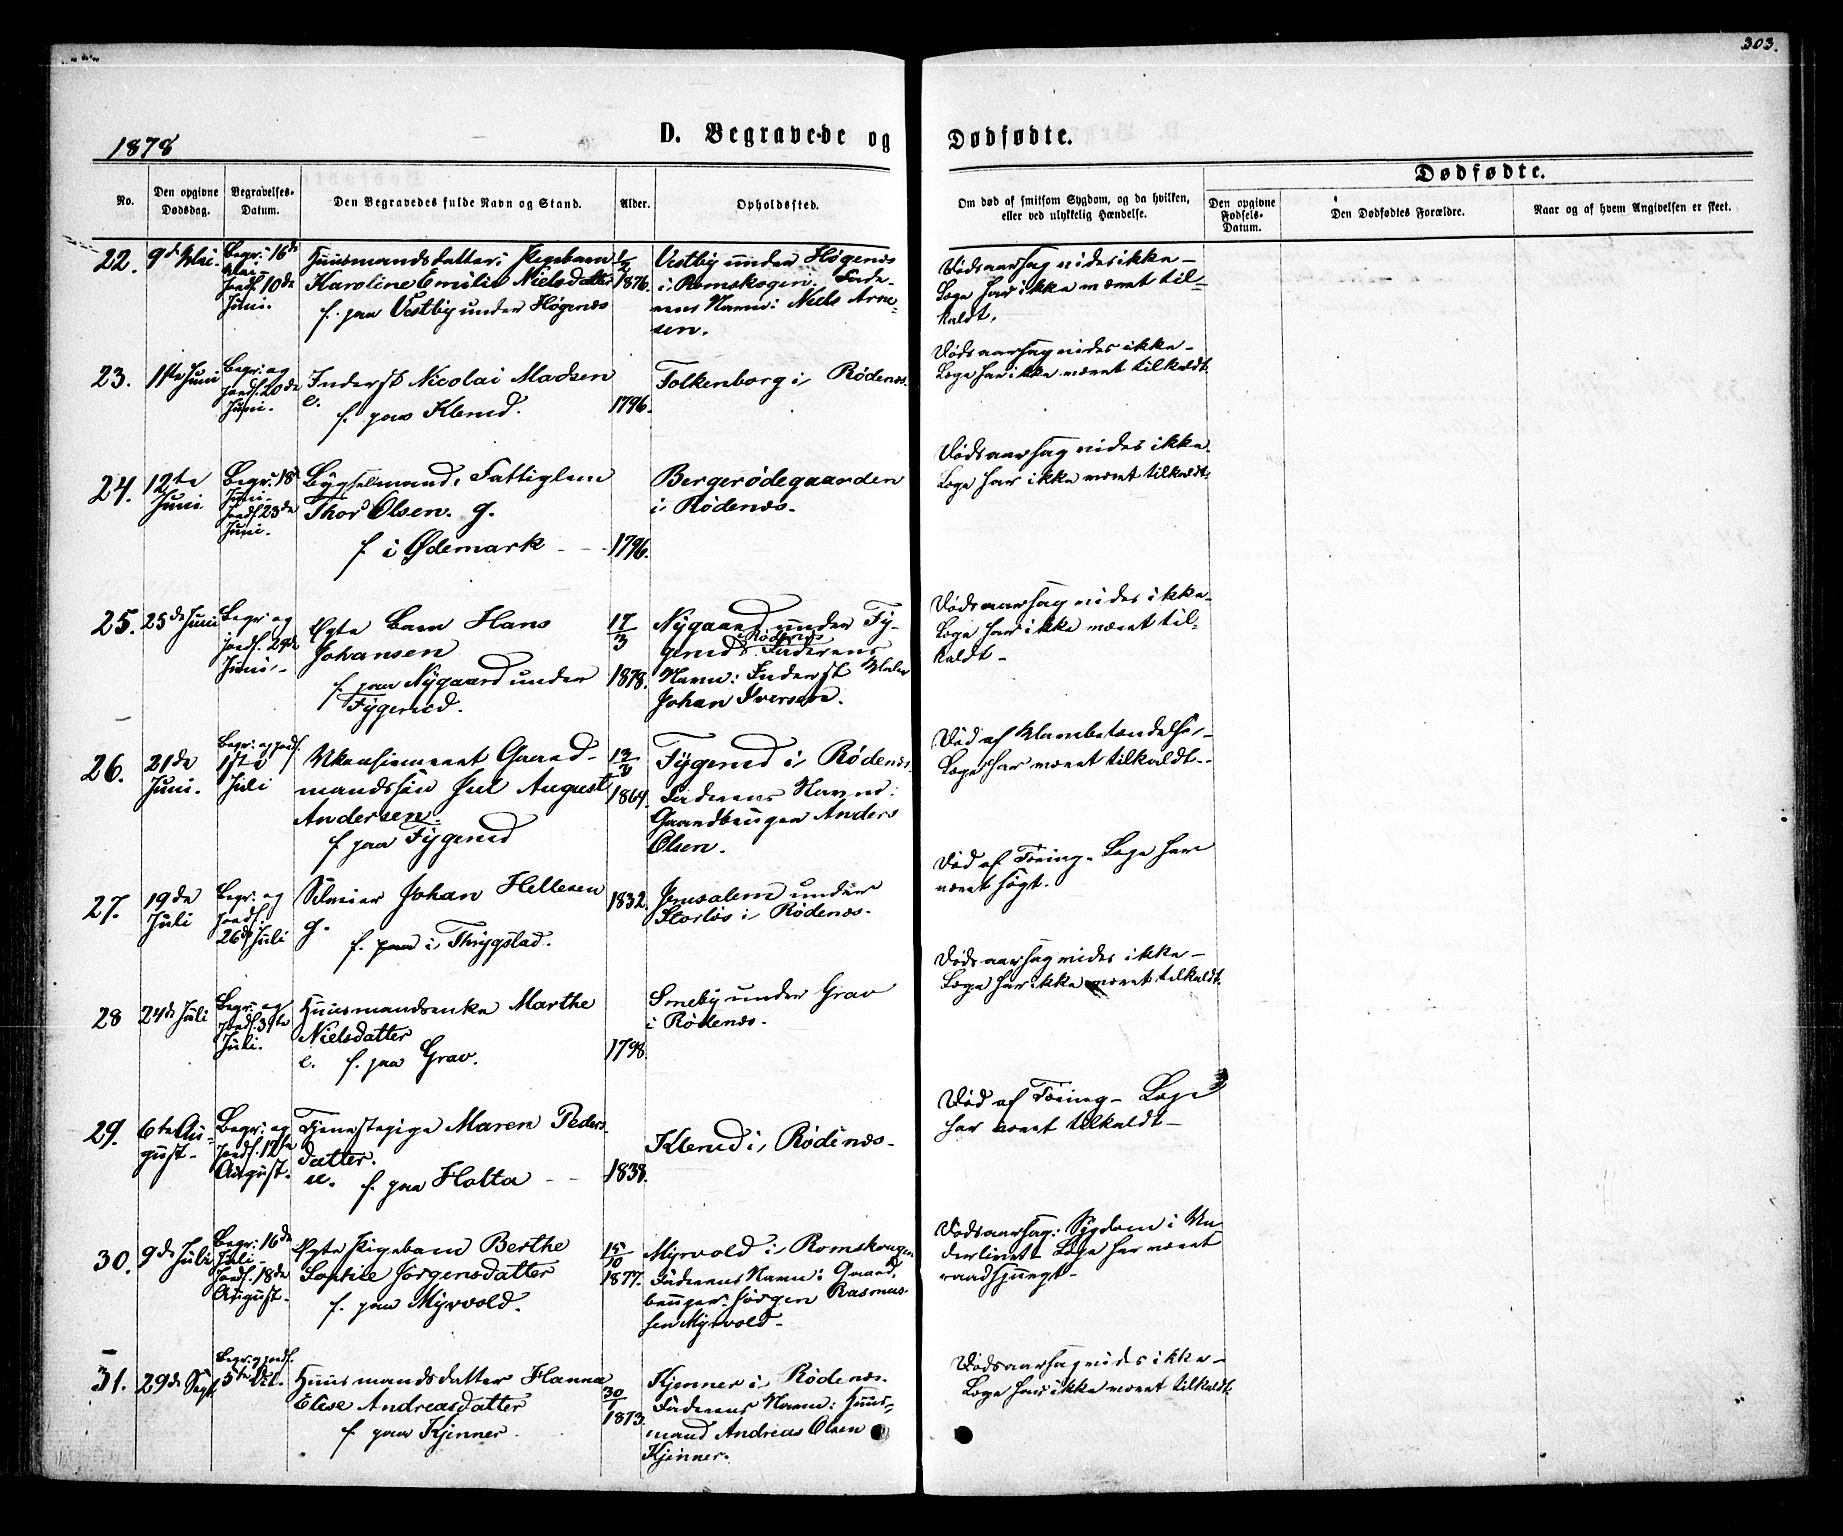 303.
1878
D. Begravede og Dødfødte.
Dødfødte.
No.
Den opgivne Dødsdag.
Begravelses-Datum.
Den Begravedes fulde Navn og Stand.
Alder.
Opholdssted.
Om død af smitsom Sygdom, og da hvilken,
eller ved ulykkelig Hændelse.
Den opgivne Fødsels-Datum.
Den Dødfødtes Forældre.
Naar og af hvem Angivelsen er skeet.
22.
9de Mai.
Begr. 16de
Mai
Jordf. 10de
Juni.
Huusmandsdatter, Pigebarn
Karoline Emilie Nielsdatter
f. paa Vestby under Høgenæs
1876.
Vestby under Høgenæs
i Romskogen. Fade-
rens Navn: Niels Arne-
sen.
Dødsaarsag vides ikke –
Læge har ikke været til-
kaldt.
23.
11te Juni
Begr. og
Jordf. 20de
Juni.
Inderst Nicolai Madsen
e.
f. paa Klerud.
1796.
Folkenborg i Rødenæs.
Dødsaarsag vides ikke –
Læge har ikke været tilkaldt.
24.
12te
Juni
Begr. 18de
Juni.
Jordf. 23de
Juni.
Bygselmand, Fattiglem
Thor Olsen. g.
f. i Ødemark
1796.
Bergerødegaarden
i Rødenæs.
Dødsaarsag vides ikke.
Læge har ikke været tilkaldt.
25.
25de Juni
Begr. og
Jordf. 29de
Juni.
Ægte Barn Hans
Johansen
f. paa Nygaard under
Tygerud.
17/3
1878.
Nygaard under Ty-
gerud i Rødenæs. Faderens
Navn: Inderst Maler
Johan Iversen.
Dødsaarsag vides ikke.
Læge har ikke været til-
kaldt –
26.
21de
Juni.
Begr. og Jordf.
1ste
Juli
Ukonfirmeret Gaard-
mandssøn Juel August
Andersen.
f. paa Tygerud
1864.
Tygerud i Rødenæs.
Faderens Navn:
Gaardbruger Anders
Olsen.
Død af
Læge har været tilkaldt. –
27.
19de
Juli
Begr. og
Jordf.
26de Juli
Selveier Johan Hellesen
g.
f. i Thrygstad.
1832.
Jerusalem under
Storløs i Rødenæs.
Død af Tæring. Læge har
været søgt.
28
24de Juli
Begr. og
Jordf. 31te
Juli.
Huusmandsenke Marthe
Nielsdatter
e. f. paa Grav.
1798.
Smeby under Grav
i Rødenæs.
Dødsaarsag vides ikke –
Læge har ikke været tilkaldt.
29.
6te Au-
gust.
Begr. og
Jordf. 12te
August.
Tjenestepige Maren Peders-
datter.
u. f. paa Holta
1838.
Klerud i Rødenæs.
Død af Tæring – Læge
har været tilkaldt –
30.
9de Juli
Begr. 16de
Juli.
Jordf. 18de
August.
Ægte Pigebarn Berthe
Sophie Jørgensdatter
f. paa Myrvold.
15/10
1877.
Myrvold i Romskogen
Faderens Navn: Gaard-
bruger Jørgen Rasmus-
sen Myrvold.
Dødsaarsag: Sygdom i Un-
derlivet – Læge har været
raadspurgt –
31.
29de Sept.
Begr. og Jordf.
5te Oct.
Huusmandsdatter Hanna
Elise Andreasdatter
f. paa Kjenner.
1873.
Kjenner i Rødenæs.
Faderens Navn: Huus-
mand Andreas Olsen
Kjenner.
Dødsaarsag vides ikke –
Læge har ikke været tilkaldt.